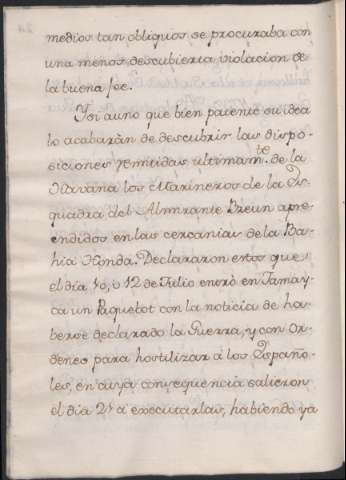 medios tan obliquos se procuraba con
una menos descubierta violacion de
la buena fee.
Y si auno que bien patente su idea
lo acabaràn de descubrir las dispo-
siciones remitidas ultimam.te de la
Havana los Marineros de la Es-
quadra del Almirante Breun apre-
endidos en las cercanias de la Ba-
hia Honda. Declararon estos que
el dia 10, ò 12 de Julio entrò en Jamay-
ca un Paquebot con la noticia de ha-
berse declarado la Guerra, y con or-
denes para hostilizar á los Españo-
les, en cuya consequencia salieron
el dia 21 á executarlas, habiendo ya